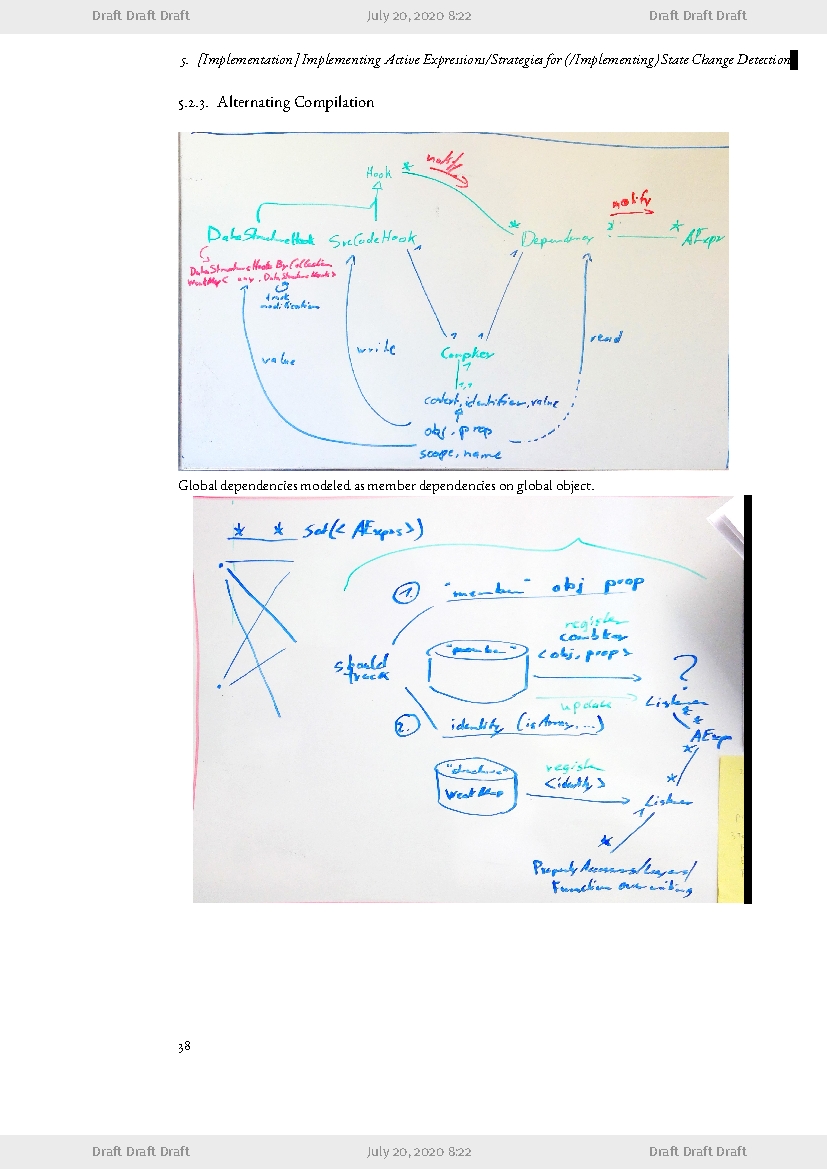 Draft Draft Draft July 20, 2020 8:22 Draft Draft Draft
5. [Implementation] Implementing Active Expressions/Strategies for (/Implementing) State Change Detection
5.2.3. Alternating Compilation
Hook * notify
notify
DataStructureHook SrcCodeHook * Dependency * AExpr
DataStructureHooks By Collection
WeakMap < any, DataStructureHooks>
track
modification
value write read
CompKey
1
1,1
context, identifier, value
obj, prop
scope, name
Global dependencies modeled as member dependencies on global object.
* * Set(<AExprs>)
1. "member" obj prop
register
combkey
<obj, prop>
"member"
should
track
?
update
Listener
2. identity (isArray, ...)
* *
AExp
*
"structure"
WeakMap
register
<identity>
*
Listener
1
*
Property Accessors/Layers/
Function overwriting
38
Draft Draft Draft July 20, 2020 8:22 Draft Draft Draft